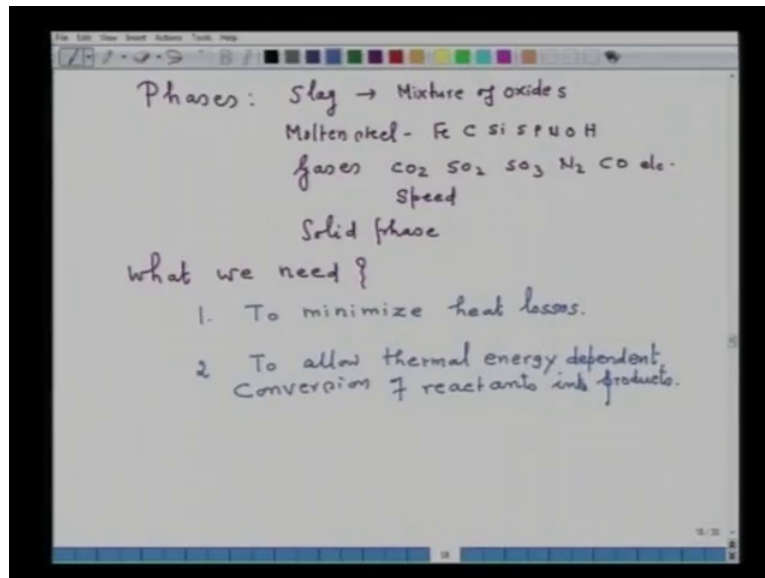 File Edit View Insert Actions Tools Help
Phases: Slag → Mixture of oxides
Molten steel - Fe C Si S P N O H
Gases CO2 SO2 SO3 N2 CO etc.
Speed
Solid phase
What we need ?
1. To minimize heat losses.
2 To allow thermal energy dependent
Conversion of reactants into products.
18